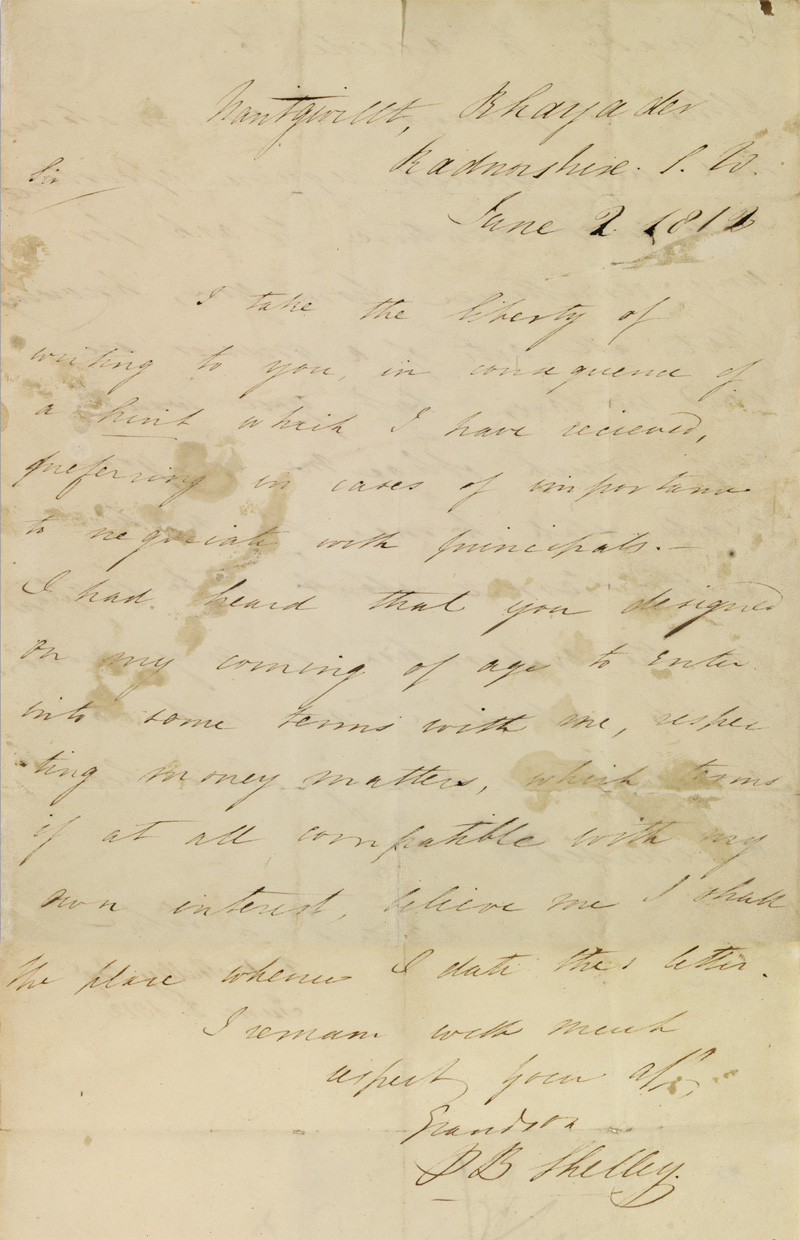 Nantgwillt, Rhayader
Radnorshire. S. W.
Sir
June 2 1812
I take the liberty of
writing to you, in consequence of
a hint which I have recieved,
preferring in cases of importance
to negociate with principals.—
I had heard that you designed
on my coming of age to enter
into some terms with me, respec
ting money matters, which terms
if at all compatible with my
own interest, believe me I shall
the place whence I date this letter.
I remain with much
respect, your aff.te
Grandson
P B Shelley.